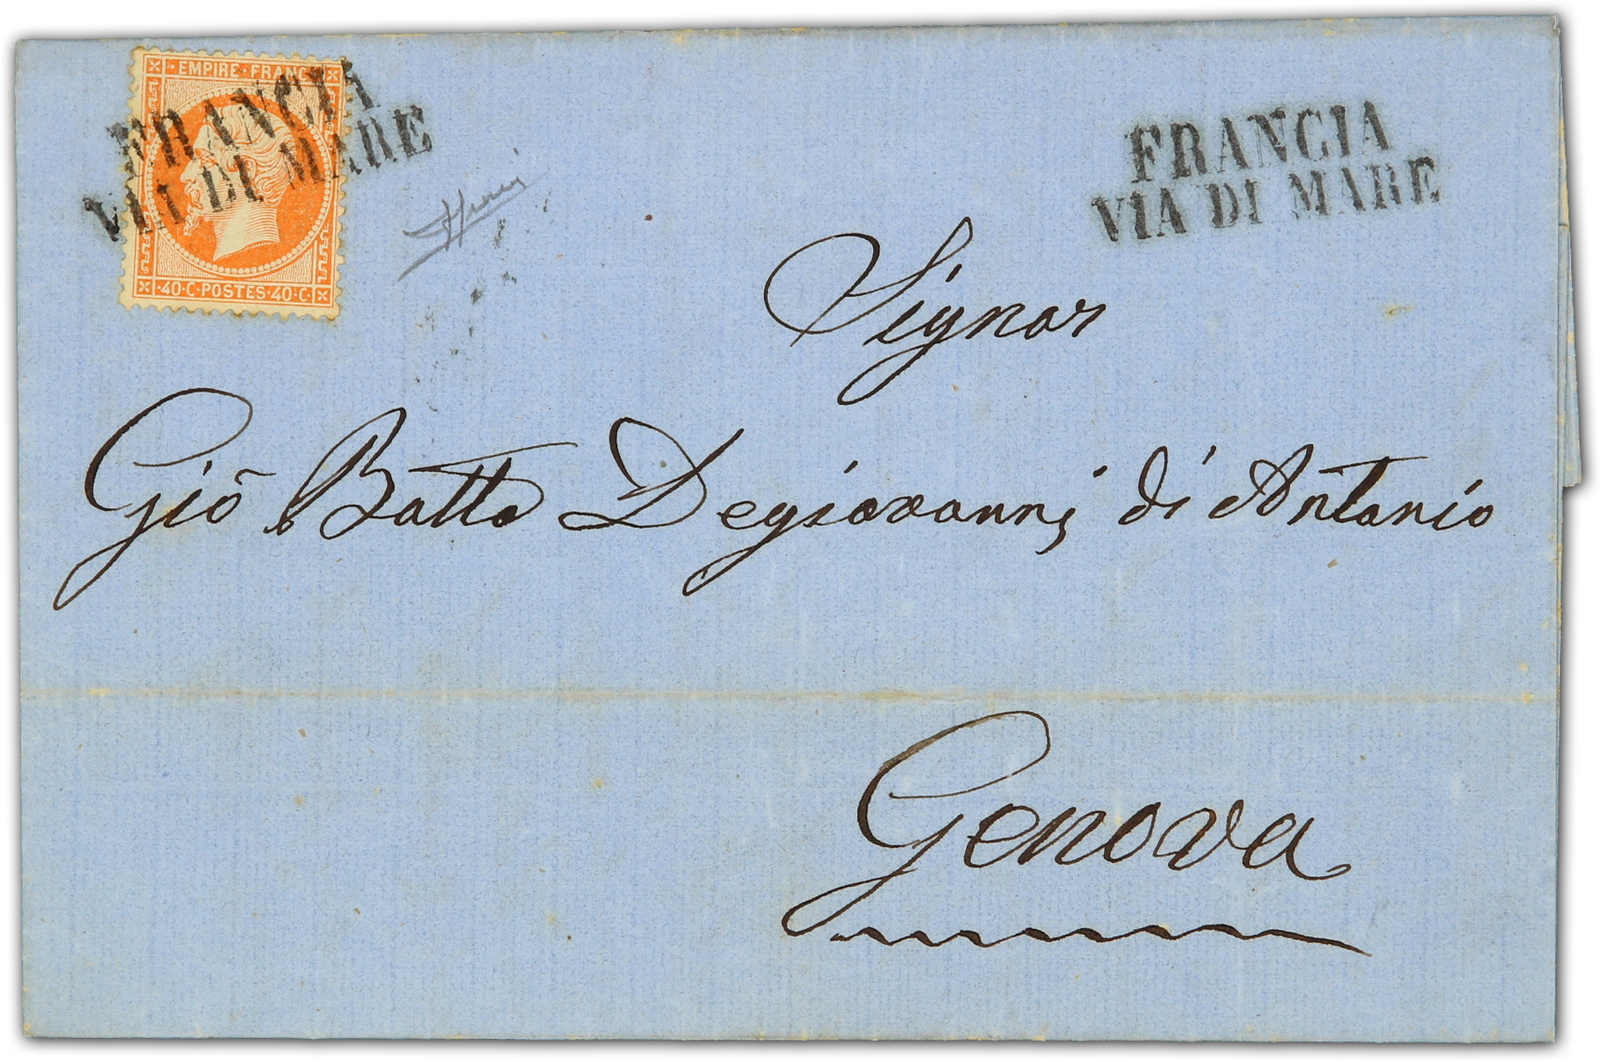 EMPIRE · FRANC
FRANCIA
VIA DI MARE
· 40 · C · POSTES · 40 · C ·
FRANCIA
VIA DI MARE
Signor
Giō Batta Degiovanni di Antonio
Genova